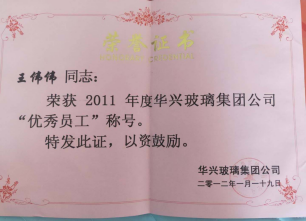 荣誉证书
王伟伟 同志：
荣获 2011 年度华兴玻璃集团公司
“优秀员工”称号。
特发此证，以资鼓励。
华兴玻璃集团公司
二零一二年一月一十九日